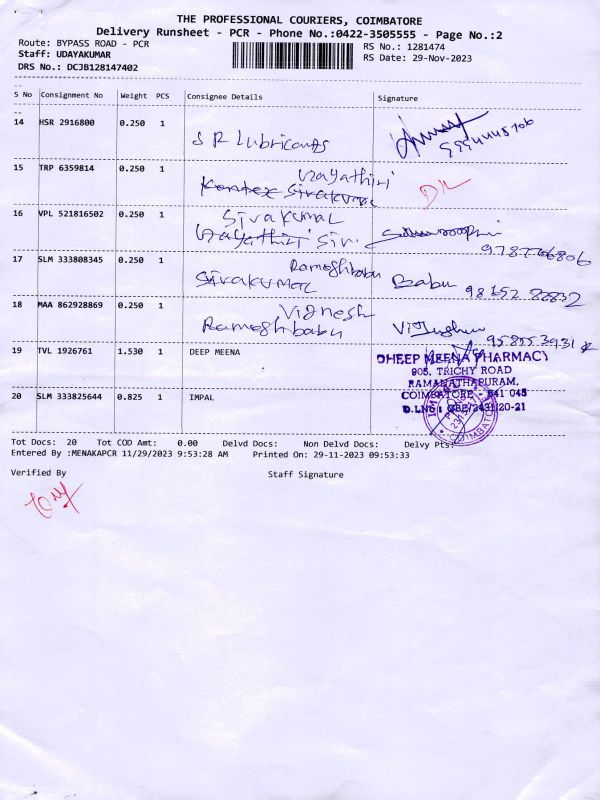 THE PROFESSIONAL COURIERS, COIMBATORE
Delivery Runsheet - PCR - Phone No.:0422-3505555 - Page No.:2
Route: BYPASS ROAD - PCR
RS No.: 1281474
Staff: UDAYAKUMAR
RS Date: 29-Nov-2023
DRS No.: DCJB128147402
S No Consignment No Weight PCS Consignee Details Signature
14 HSR 2916800 0.250 1 S R Lubricants
15 TRP 6359814 0.250 1 Gayathiri
Kontex Sivakumal
16 VPL 521816502 0.250 1 Sivakumal
Gayathiri Siv.
17 SLM 333808345 0.250 1 Rameshbabu Babu
Sivakumal
18 MAA 862928869 0.250 1 Vignesh
Rameshbabu
19 TVL 1926761 1.530 1 DEEP MEENA
DHEEP MEENA PHARMACY
905, TRICHY ROAD
RAMANATHAPURAM,
20 SLM 333825644 0.825 1 IMPAL
COIMBATORE - 641 045
Tot Docs: 20 Tot COD Amt: 0.00 Delvd Docs: Non Delvd Docs: Delvy Pts:
Entered By :MENAKAPCR 11/29/2023 9:53:28 AM Printed On: 29-11-2023 09:53:33
Verified By Staff Signature